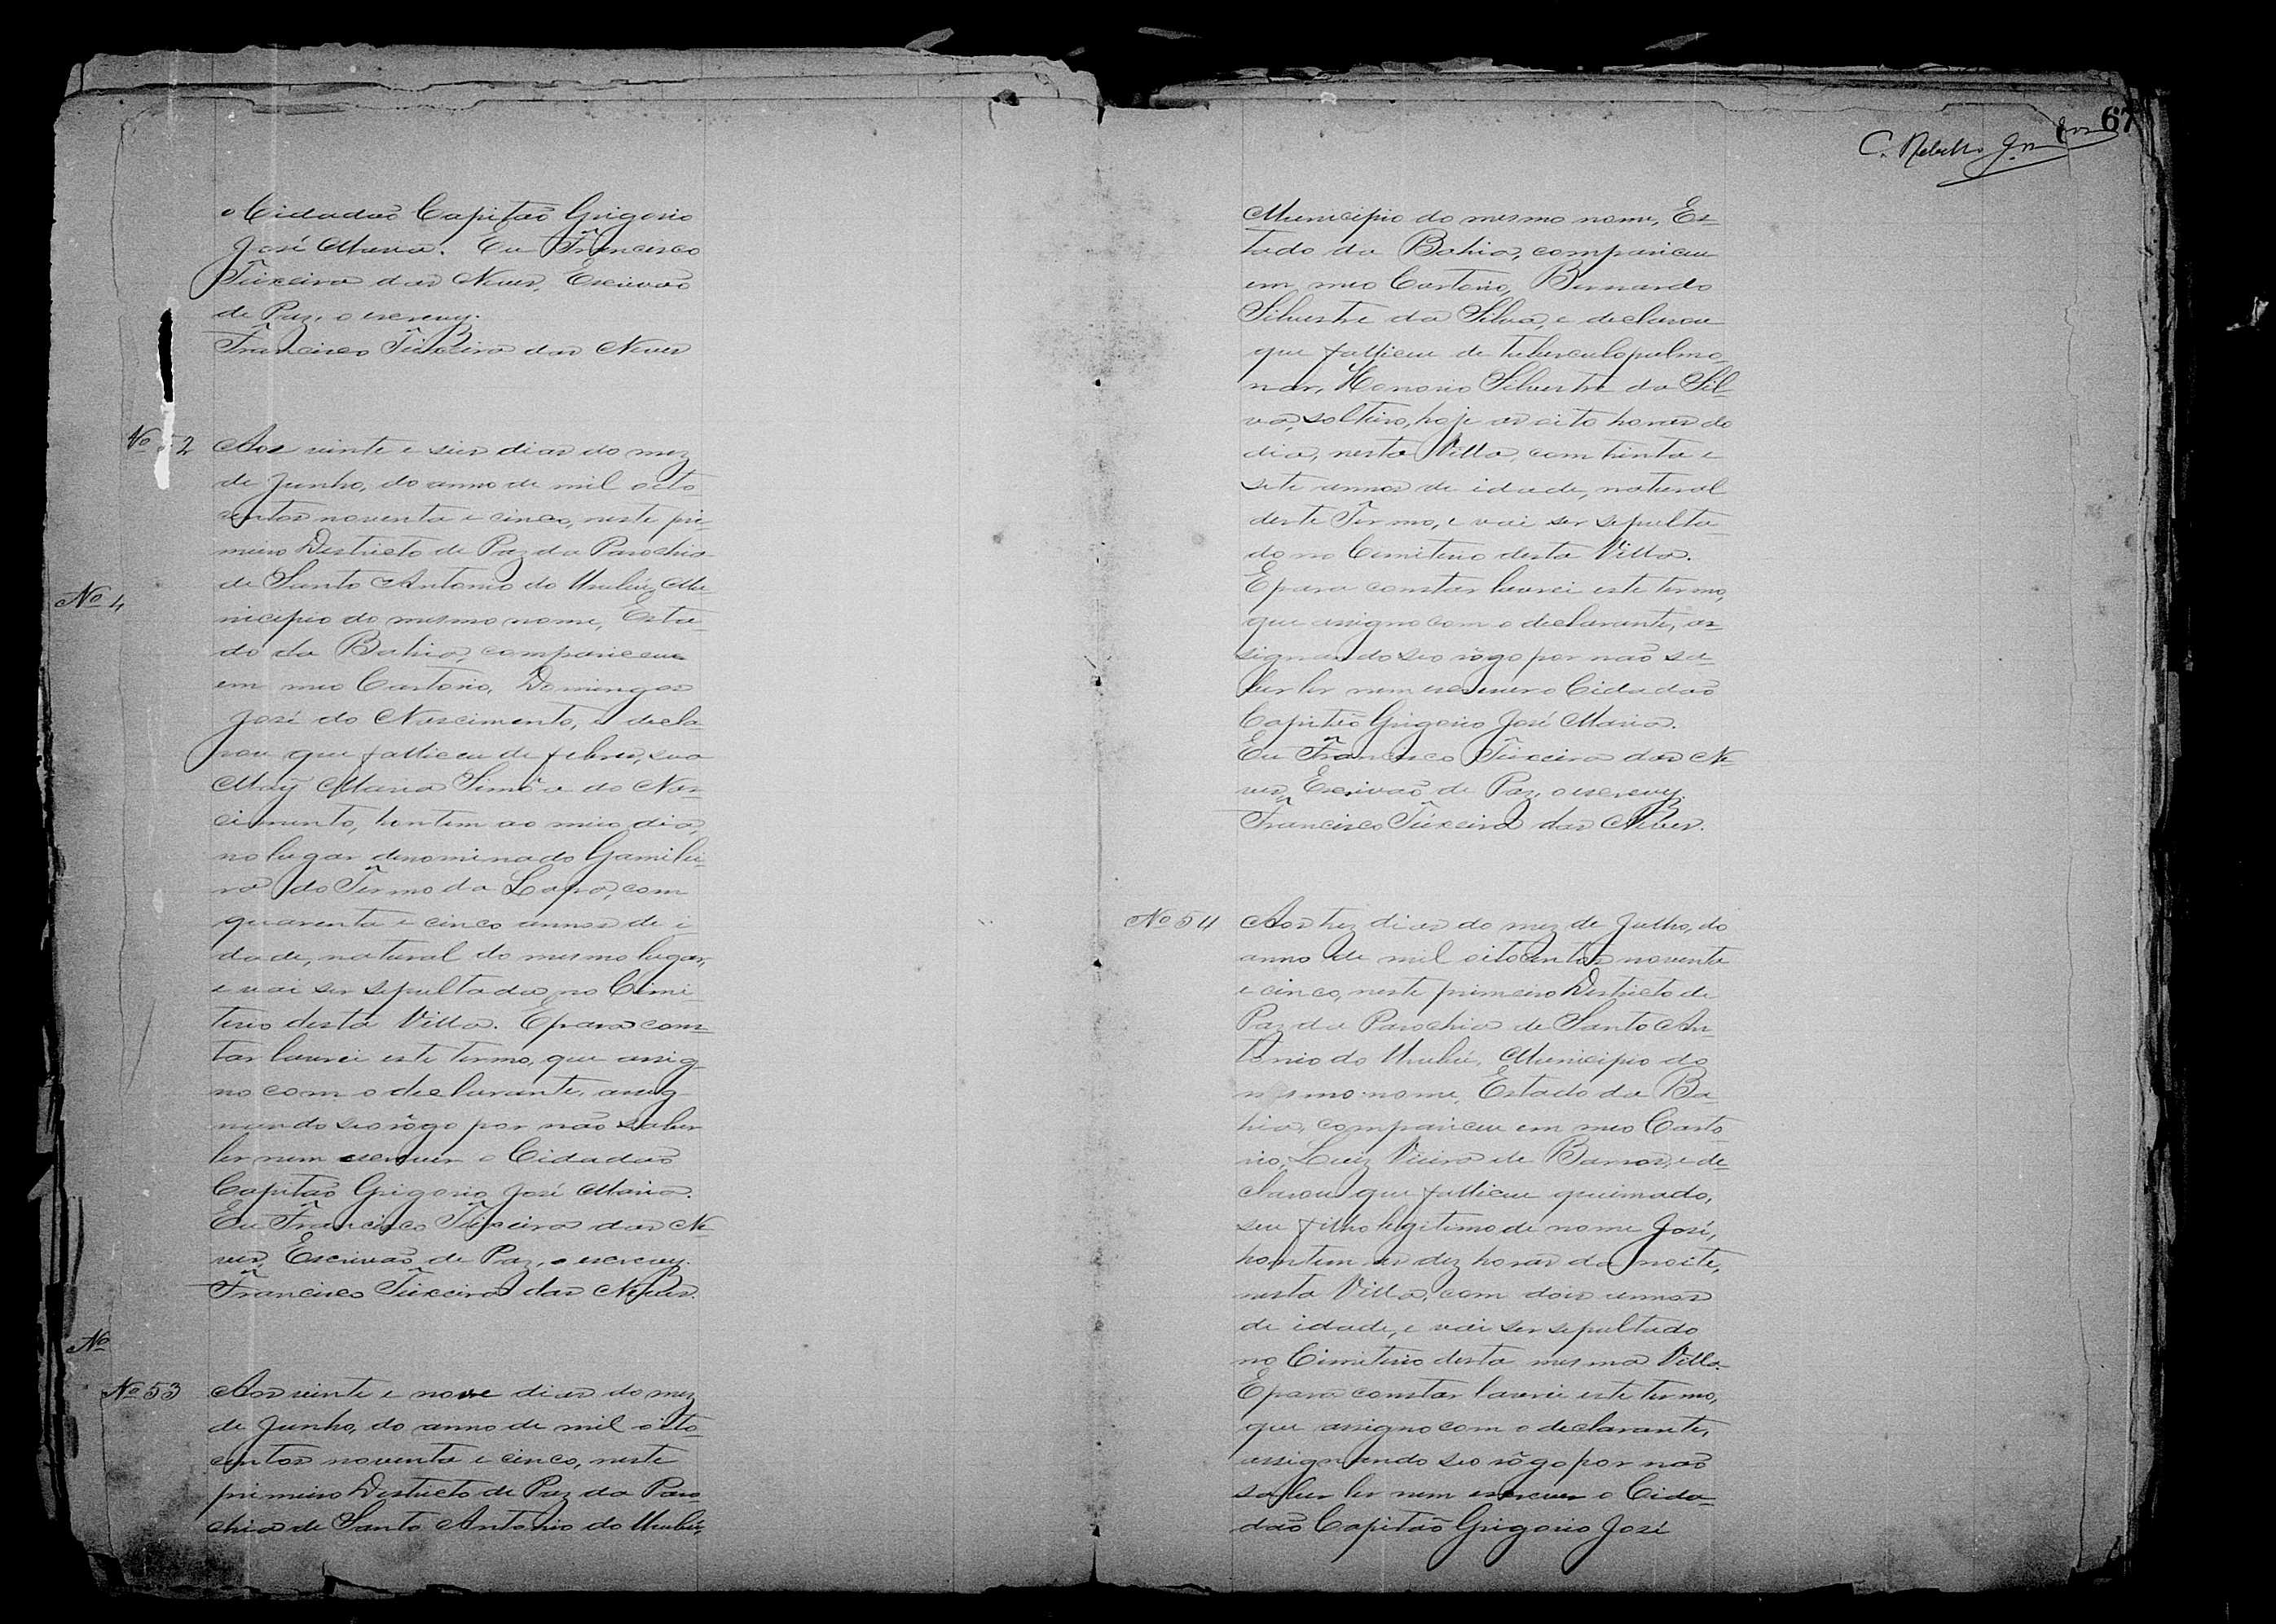 o Cidadão Capitão Grigorio
José Maria. Eu Francisco
Teixeira das Neves, Escrivão
de Paz, o escrevy.
Francisco Teixeira das Neves
No 52 Aos vinte e seis dias do mez
de Junho, do anno de mil oito
centos noventa e cinco, neste pri-
meiro Destricto de Paz da Parochia
de Santo Antonio do Urubú, Mu
No 4
nicipio do mesmo nome, Esta-
do da Bahia, compareceu
em meo Cartorio, Domingos
José do Nascimento, e decla-
rou que falleceu de febres, sua
Maÿ Maria Simôa do Nas-
cimento, hontem ao meio dia,
no lugar denominado Gamilei-
ra do Termo da Lapa, com
quarenta e cinco annos de i
dade, natural do mesmo lugar,
e vai ser sepultada no Cimi
terio desta Villa. E para cons-
tar lavrei este termo, que assig-
no com o declarante, assig-
nando seo rôgo por não saber
ler nem escrever o Cidadão
Capitão Grigorio José Maria.
Eu Francisco Teixeira das Ne
ves, Escrivão de Paz, o escrevy.
Francisco Teixeira das Neves.
No
No 53 Aos vinte e nove dias do mez
de Junho, do anno de mil oito-
centos noventa e cinco, neste
primeiro Destricto de Paz da Paro-
chia de Santo Antonio do Urubú,
67
C. Rebello
Municipio do mesmo nome, Es-
tado da Bahia, compareceu
em meo Cartorio, Bernardo
Silvestre da Silva, e declarou
que falleceu de tuberculo pulmo-
nar, Honorio Silvestre da Sil-
va, solteiro, hoje as oito horas do
dia, nesta Villa, com trinta e
sete annos de idade, natural
deste Termo, e vai ser sepulta-
do no Cemiterio desta Villa.
E para constar lavrei este termo,
que assigno com o declarante, as-
signando seo rôgo por não sa-
ber ler nem escrever o Cidadão
Capitão Grigorio José Maria.
Eu Francisco Teixeira das Ne
ves, Escrivão de Paz, o escrevy.
Francisco Teixeira das Neves.
No 54 Aos trez dias do mez de Julho, do
anno de mil oitocentos noventa
e cinco, neste primeiro Destricto de
Paz da Parochia de Santo An-
tonio do Urubú, Municipio do
mesmo nome, Estado da Ba-
hia, compareceu em meo Carto
rio, Luiz Vieira de Barros, e de-
clarou que falleceu queimado,
seu filho legitimo de nome José,
hontem as dez horas da noite,
nesta Villa, com dois annos
de idade, e vai ser sepultado
no Cimiterio desta mesma Villa.
E para constar lavrei este termo,
que assigno com o declarante,
assignando seo rôgo por não
saber ler nem escrever o Cida-
dão Capitão Grigorio José